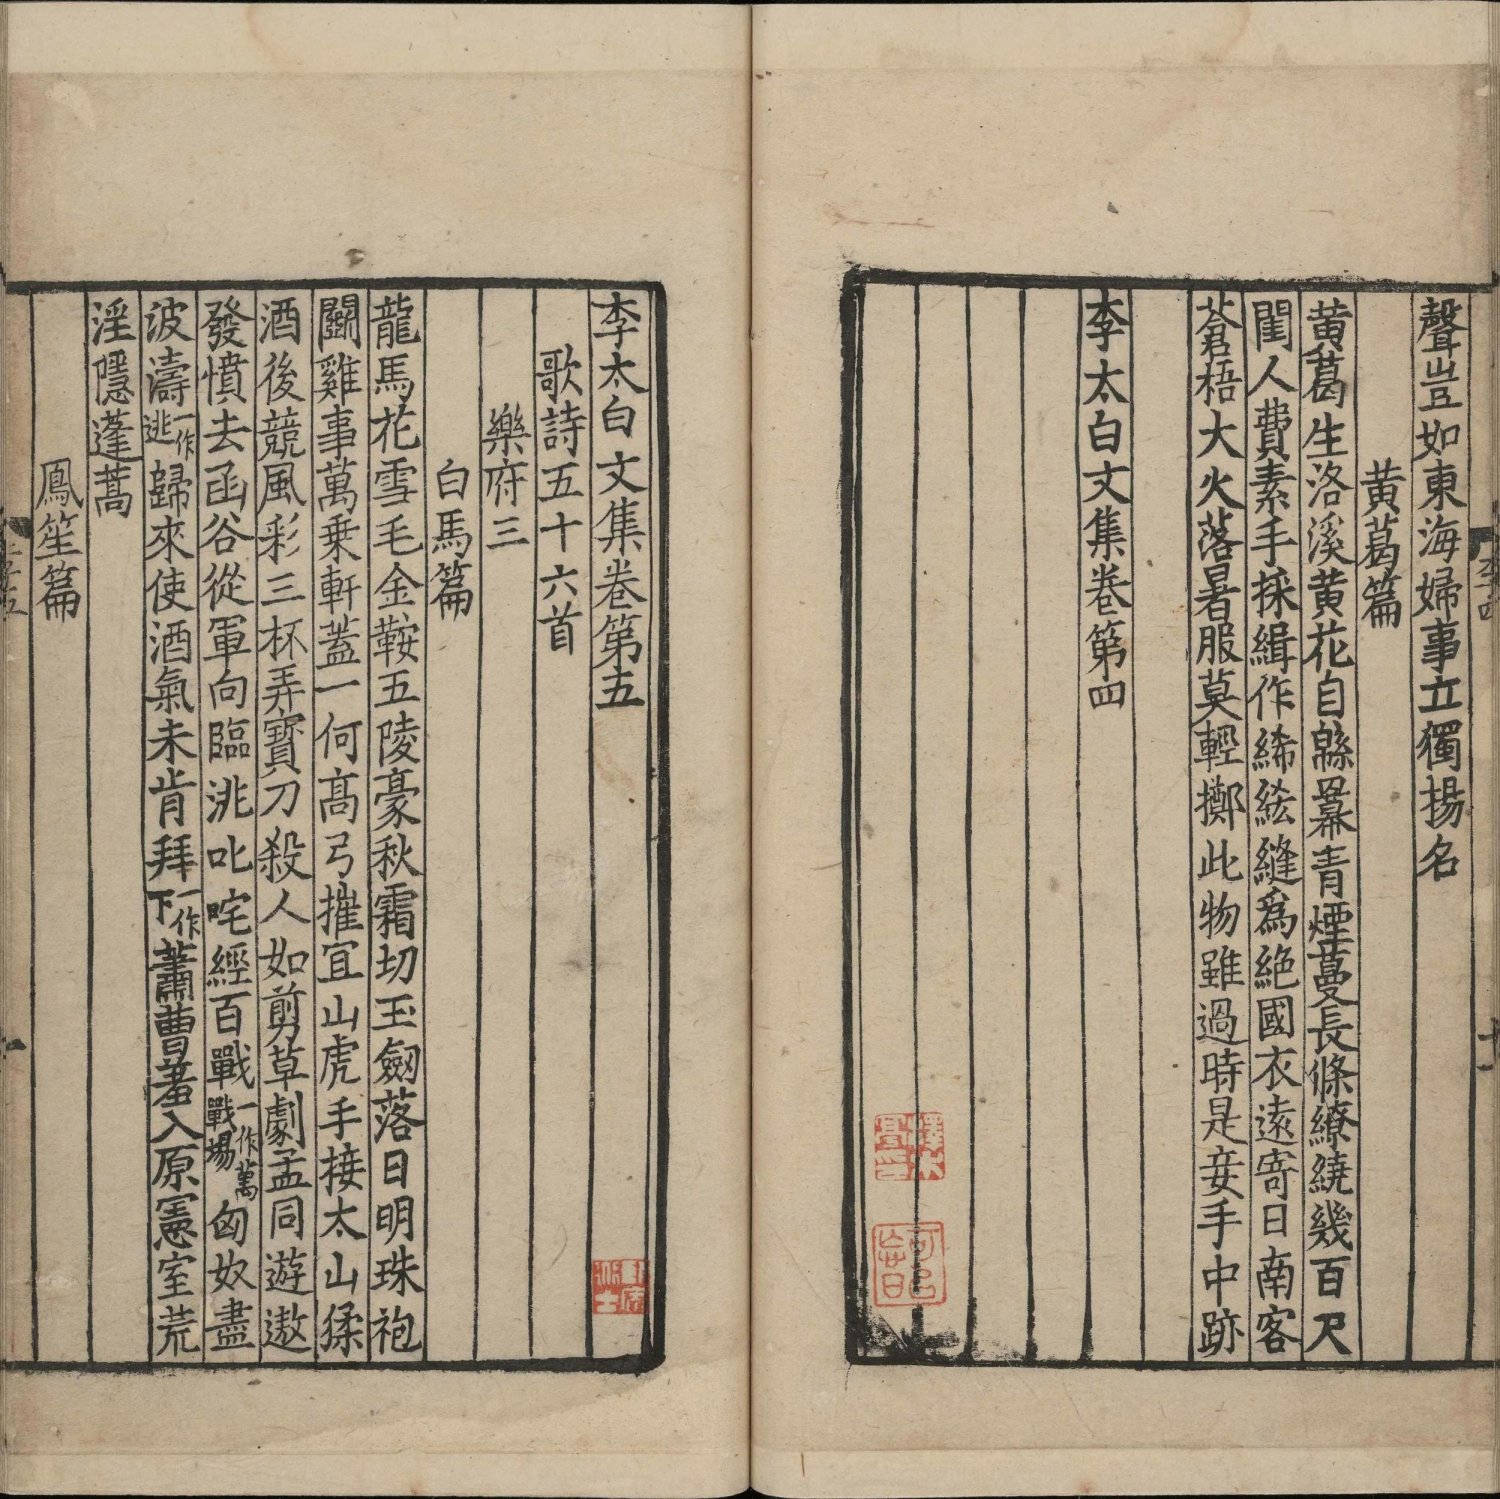 聲豈如東海婦事立獨揚名
黃葛篇
黃葛生洛溪黃花自緜羃青煙蔓長條繚繞幾百尺
閨人費素手採緝作絺綌縫爲絶國衣遠寄日南客
蒼梧大火落暑服莫輕擲此物雖過時是妾手中跡
李太白文集卷第四
李太白文集卷第五
歌詩五十六首
樂府三
白馬篇
龍馬花雪毛金鞍五陵豪秋霜切玉劒落日明珠袍
鬭雞事萬乗軒蓋一何高弓摧宜山虎手接太山猱
酒後競風彩三杯弄寶刀殺人如剪草劇孟同遊遨
發憤去函谷從軍向臨洮叱咤經百戰一作萬戰場匈奴盡
波濤一作逃歸來使酒氣未肯拜一作下蕭曹羞入原憲室荒
淫隱蓬蒿
鳳笙篇